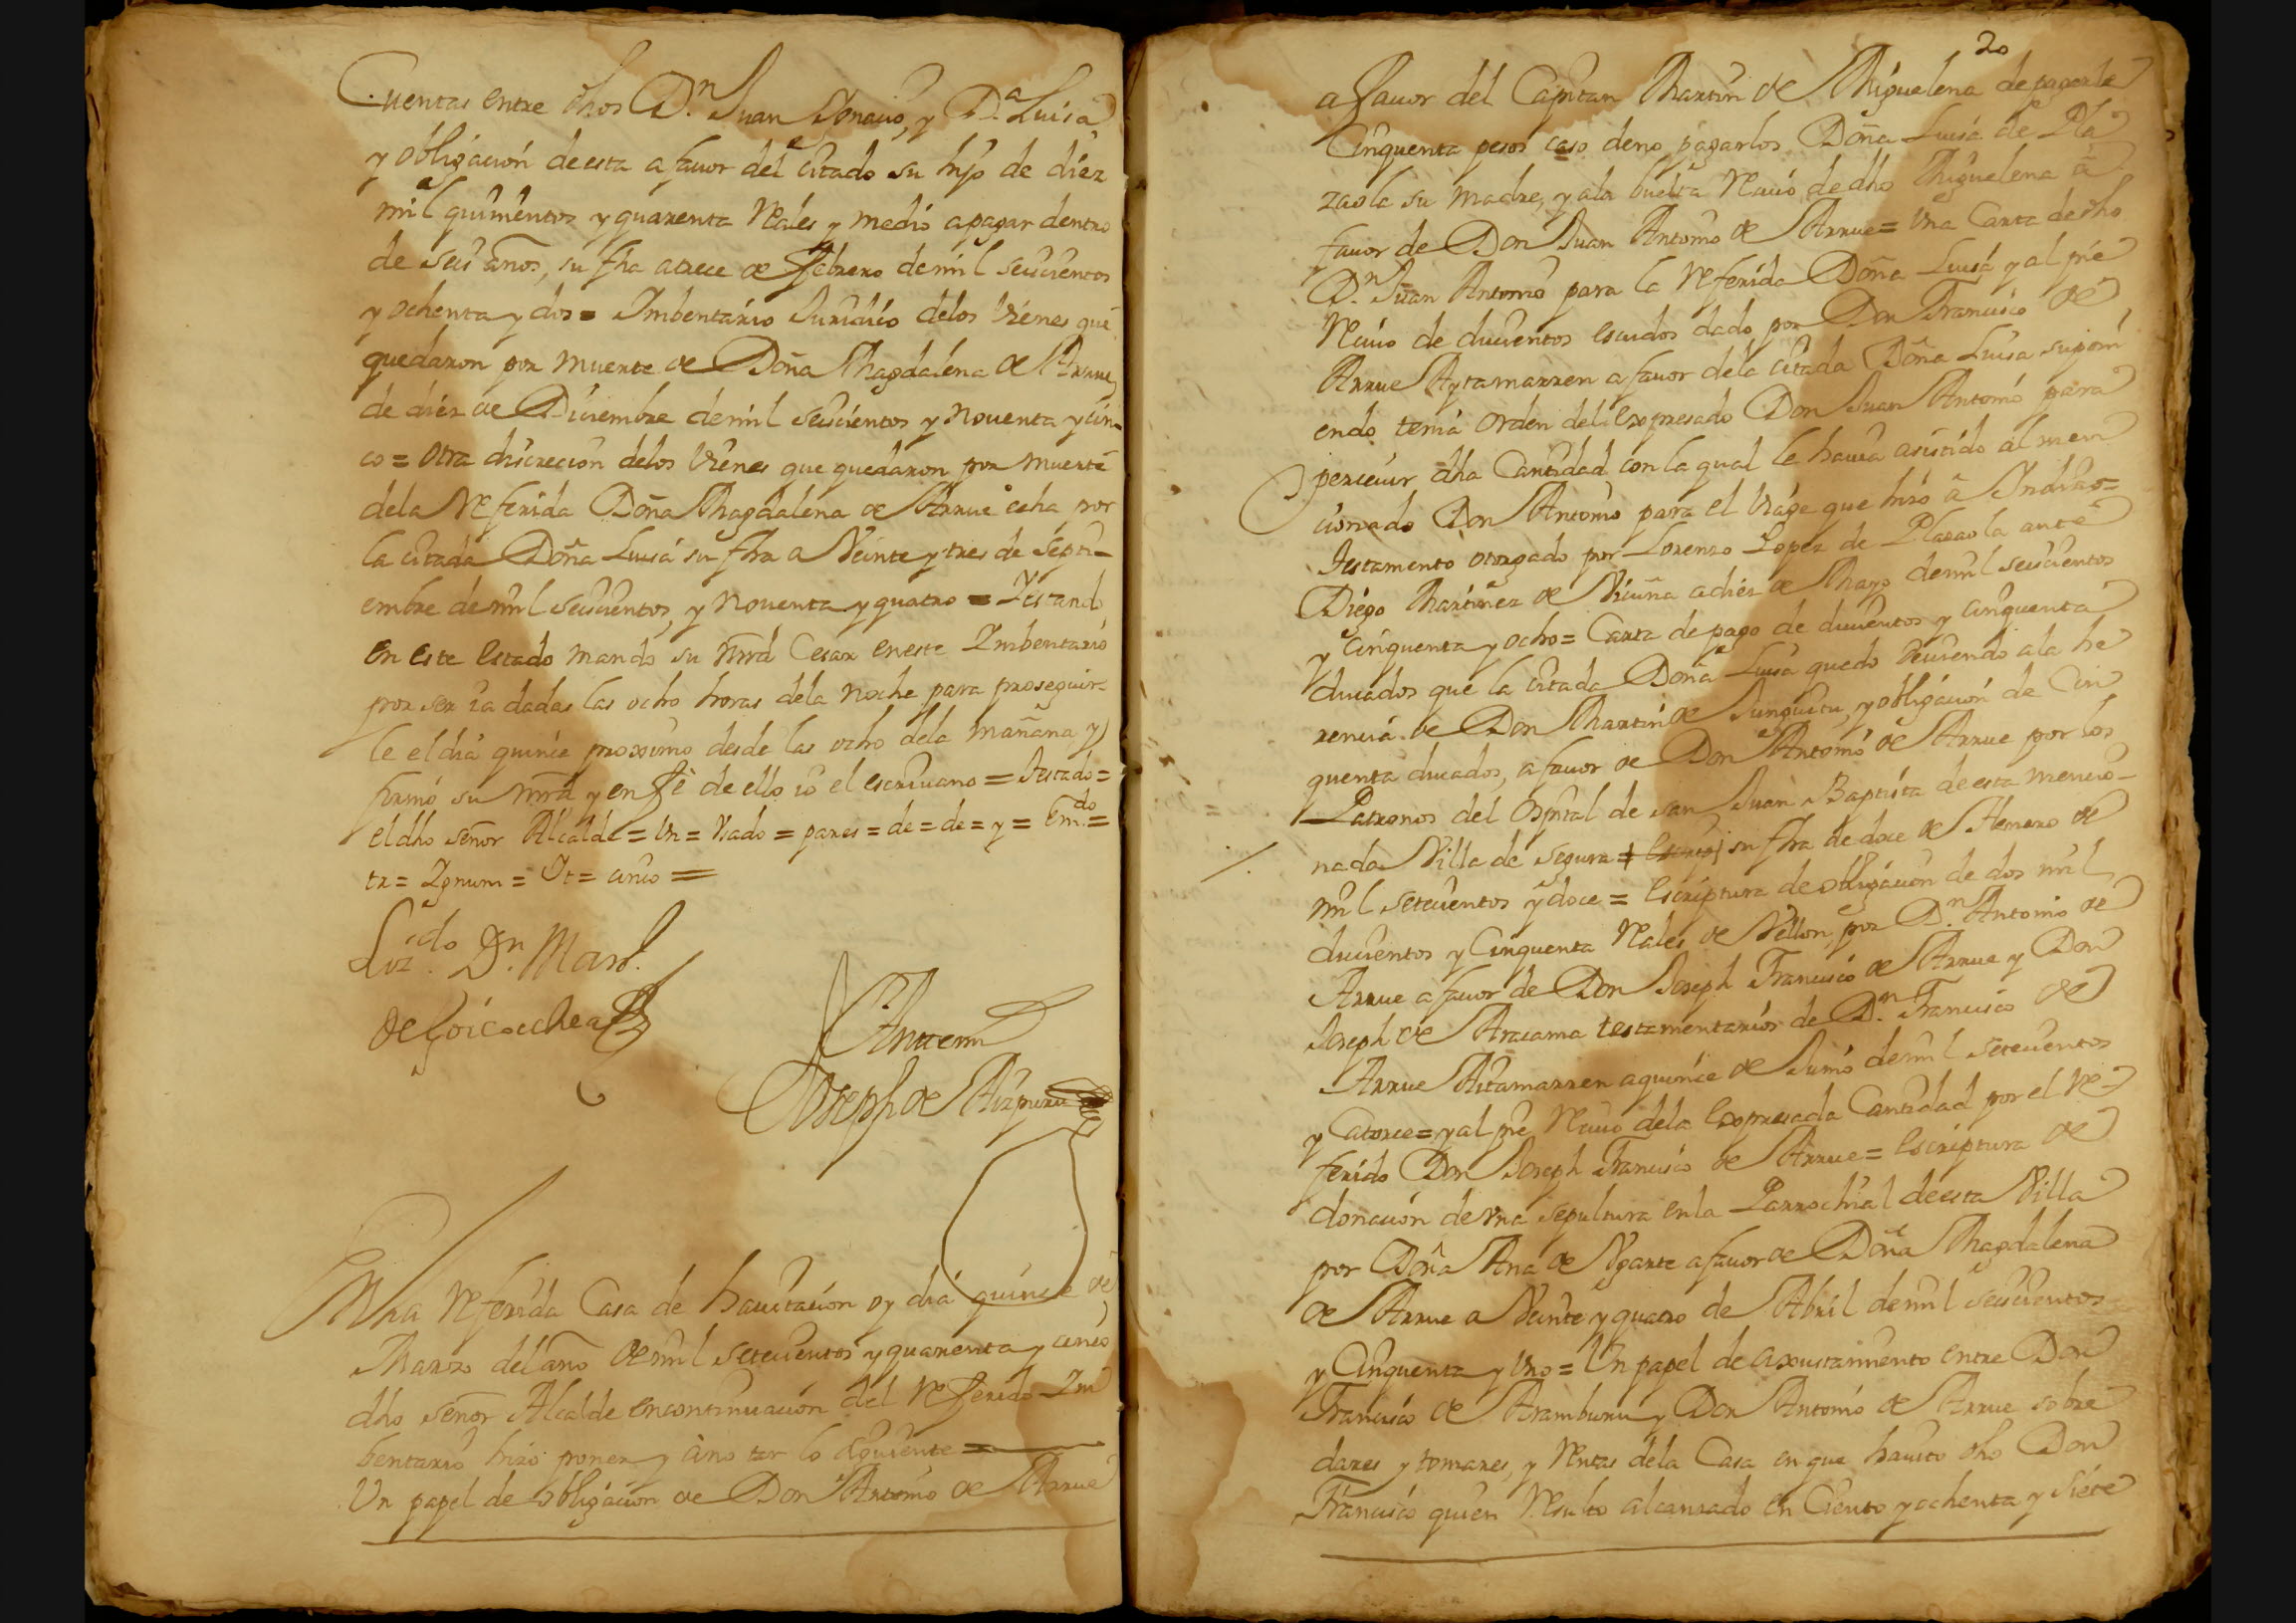 Cuentas entre dhos Dn. Juan Ygnacio, y Da. Luisa
y obligacion de esta a fauor del citado su hijo de diez
mil quinientos y quarenta Reales y medio a pagar dentro
de seis años, su fha a trece de Febrero de mil seiscientos
y ochenta y dos = Imbentario Juridico delos vienes que
quedaron por muerte de Doña Magdalena de Arrue
de diez de Diciembre de mil seiscientos y noventa y cin-
co = otra discrecion delos vienes que quedaron por muerte
dela Referida Doña Magdalena de Arrue echa por
la citada Doña Luisa su fha a Veinte y tres de Septi-
embre de mil seiscientos, y noventa y quatro = Y estando
en este estado mando su mrd Cesar en este Imbentario
por ser ia dadas las ocho horas dela noche para proseguir-
le el dia quince proximo desde las ocho dela mañana y
firmó su mrd y en Fe de ello io el escriuano = Testado =
el dho señor Alcalde = Un = Vado = pares = de = de = y = Emdo =
tr = Ignum = Ot = cinco =
Lizdo. Dn. Marl.
de Goicoechea
Antemi
Joseph de Aizpuru
En la Referida Casa de hauitacion oy dia quince de
Marzo del año de mil setecientos y quarenta y cinco
dho señor Alcalde en continuacion del Referido Im
bentario hizo poner y ano tar lo siguiente =
Un papel de obligacion de Don Antonio de Arrue
20
a fauor del Capitan Martin de Miguelena de pagarle
Cinquenta pesos caso de no pagarlos Doña Luisa de Pla
zaola su madre, y ala buelta Reciuo de dho Miguelena a
fauor de Don Juan Antonio de Arrue = Una Carta de dho
Dn. Juan Antonio para la Referida Doña Luisa y al pie
Reciuo de ducientos escudos dado por Don Francisco de
Arrue Aytamarren a fauor dela citada Doña Luisa suponi
endo tenia orden del expresado Don Juan Antonio para
perceuir dha Cantidad con la qual le hauia asistido al men
cionado Don Antonio para el viage que hizo â Indias =
Testamento otorgado por Lorenzo Lopez de Plazaola ante
Diego Martinez de Vicuña a diez de Mayo de mil seiscientos
y cinquenta y ocho = Carta de pago de ducientos y cinquenta
ducados que la citada Doña Luisa quedo deuiendo ala he
rencia de Don Martin de Junguitu, y obligacion de Cin
quenta ducados, a fauor de Don Antonio de Arrue por los
Patronos del Ospital de san Juan Baptista de esta mencio-
nada Villa de Segura = su fha de doce de Henero de
mil setecientos y doce = Escriptura de obligacion de dos mil
ducientos y Cinquenta Reales de Vellon, por Dn. Antonio de
Arrue a fauor de Don Joseph Francisco de Arrue y Don
Joseph de Aracama testamentarios de Dn. Francisco de
Arrue Aitamarren a quince de Junio de mil setecientos
y Catorce = y al pie Reciuo dela expresada Cantidad por el Re
ferido Don Joseph Francisco de Arrue = Escriptura de
donacion de vna sepultura en la Parrochial de esta Villa
por Doña Ana de Ygarte a fauor de Doña Magdalena
de Arrue a Veinte y quatro de Abril de mil seiscientos
y Cinquenta y Uno = Un papel de axustamiento entre Don
Francisco de Aramburu y Don Antonio de Arrue sobre
dares y tomares, y Rentas dela Casa en que hauito dho Don
Francisco quien Resulto alcanzado en Ciento y ochenta y siete